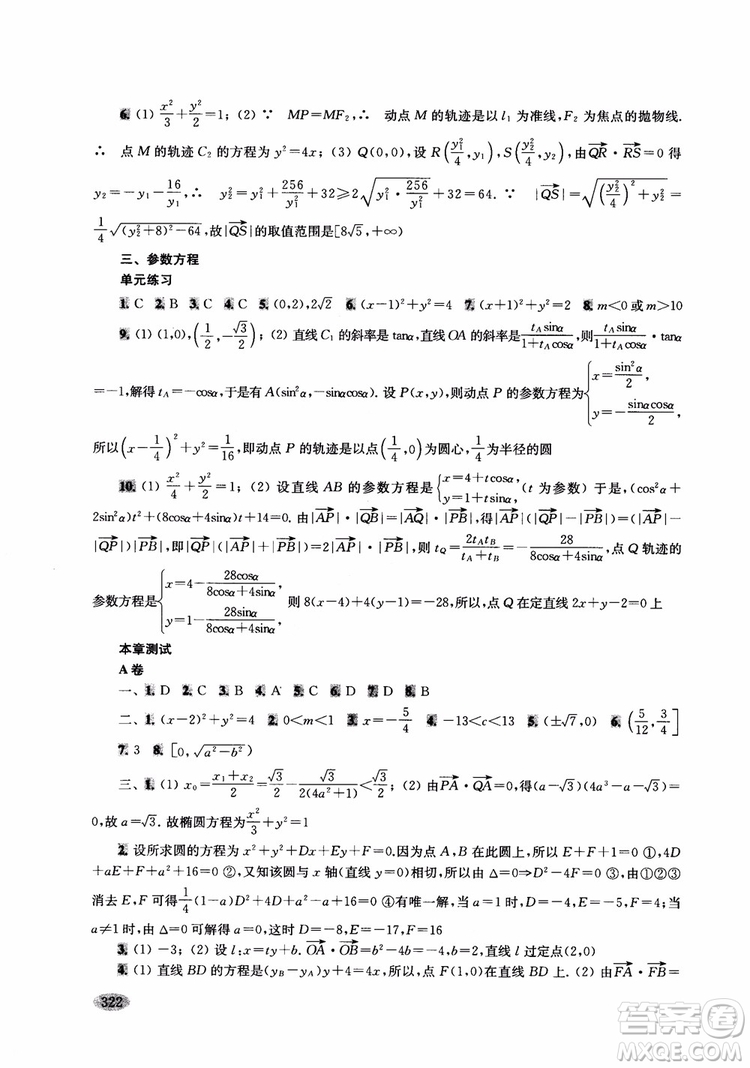 6. (1) x²/3+y²/2=1; (2) ∵ MP=MF₂,∴ 动点 M 的轨迹是以 l₁ 为准线,F₂ 为焦点的抛物线.
∴ 点 M 的轨迹 C₂ 的方程为 y²=4x; (3) Q(0,0),设 R(y₁²/4,y₁),S(y₂²/4,y₂),由→QR·→RS=0 得
y₂=-y₁-16/y₁,∴ y₂²=y₁²+256/y₁²+32≥2√(y₁²·256/y₁²)+32=64. ∵ |→QS|=√((y₂²/4)²+y₂²)=
1/4√((y₂²+8)²-64),故|→QS|的取值范围是[8√5,+∞)
三、参数方程
单元练习
1. C 2. B 3. C 4. C 5. (0,2),2√2 6. (x-1)²+y²=4 7. (x-1)²+y²=4 8. m<0 或 m>10
9. (1) (1,0),(1/2,-√3/2); (2) 直线 C₁ 的斜率是 tanα,直线 OA 的斜率是 t_A sinα/(1+t_A cosα),则 t_A sinα/(1+t_A cosα)·tanα
=-1,解得 t_A=-cosα,于是有 A(sin²α,-sinαcosα). 设 P(x,y),则动点 P 的参数方程为{x=sin²α/2, y=-sinαcosα/2,
所以(x-1/4)²+y²=1/16,即动点 P 的轨迹是以点(1/4,0)为圆心,1/4为半径的圆
10. (1) x²/4+y²/2=1; (2) 设直线 AB 的参数方程是{x=4+tcosα, y=1+tsinα,(t 为参数) 于是,(cos²α+
2sin²α)t²+(8cosα+4sinα)t+14=0. 由|→AP|·|→QB|=|→AQ|·|→PB|,得|→AP|(|→QP|+|→PB|)=(|→AP|-
|→QP|)|→PB|,即|→QP|(|→AP|+|→PB|)=2|→AP|·|→PB|,则 t_Q=2t_At_B/(t_A+t_B)=-28/(8cosα+4sinα),点 Q 轨迹的
参数方程是{x=4-28cosα/(8cosα+4sinα), y=1-28sinα/(8cosα+4sinα), 则 8(x-4)+4(y-1)=-28,所以,点 Q 在定直线 2x+y-2=0 上
本章测试
A 卷
一、1. D 2. C 3. B 4. A 5. C 6. D 7. D 8. B
二、1. (x-2)²+y²=4 2. 0<m<1 3. x=-5/4 4. -13<c<13 5. (±√7,0) 6. (5/12,3/4]
7. 3 8. [0,√(a²-b²))
三、1. (1) x₀=(x₁+x₂)/2=√3/2-√3/(2(4a²+1))<√3/2; (2) 由→PA·→QA=0,得(a-√3)(4a³-√3)=
0,故 a=√3. 故椭圆方程为x²/3+y²=1
2. 设所求圆的方程为 x²+y²+Dx+Ey+F=0.因为点 A,B 在此圆上,所以 E+F+1=0 ①,4D
+aE+F+a²+16=0 ②,又知该圆与 x 轴(直线 y=0)相切,所以由 Δ=0⇒D²-4F=0 ③,由①②③
消去 E,F 可得1/4(1-a)D²+4D+a²-a+16=0 ④有唯一解,当 a=1 时,D=-4,E=-5,F=4;当
a≠1 时,由 Δ=0 可得 a=0,这时 D=-8,E=-17,F=16
3. (1) -3; (2) 设 l:x=ty+b. →OA·→OB=b²-4b=-4,解得 b=2,直线 l 过定点(2,0)
4. (1) 直线 BD 的方程是(y_B-y_A)y+4=4x,所以点 F(1,0)在直线 BD 上. (2) 由→FA·→FB=
322
答案圈
MXQE.COM